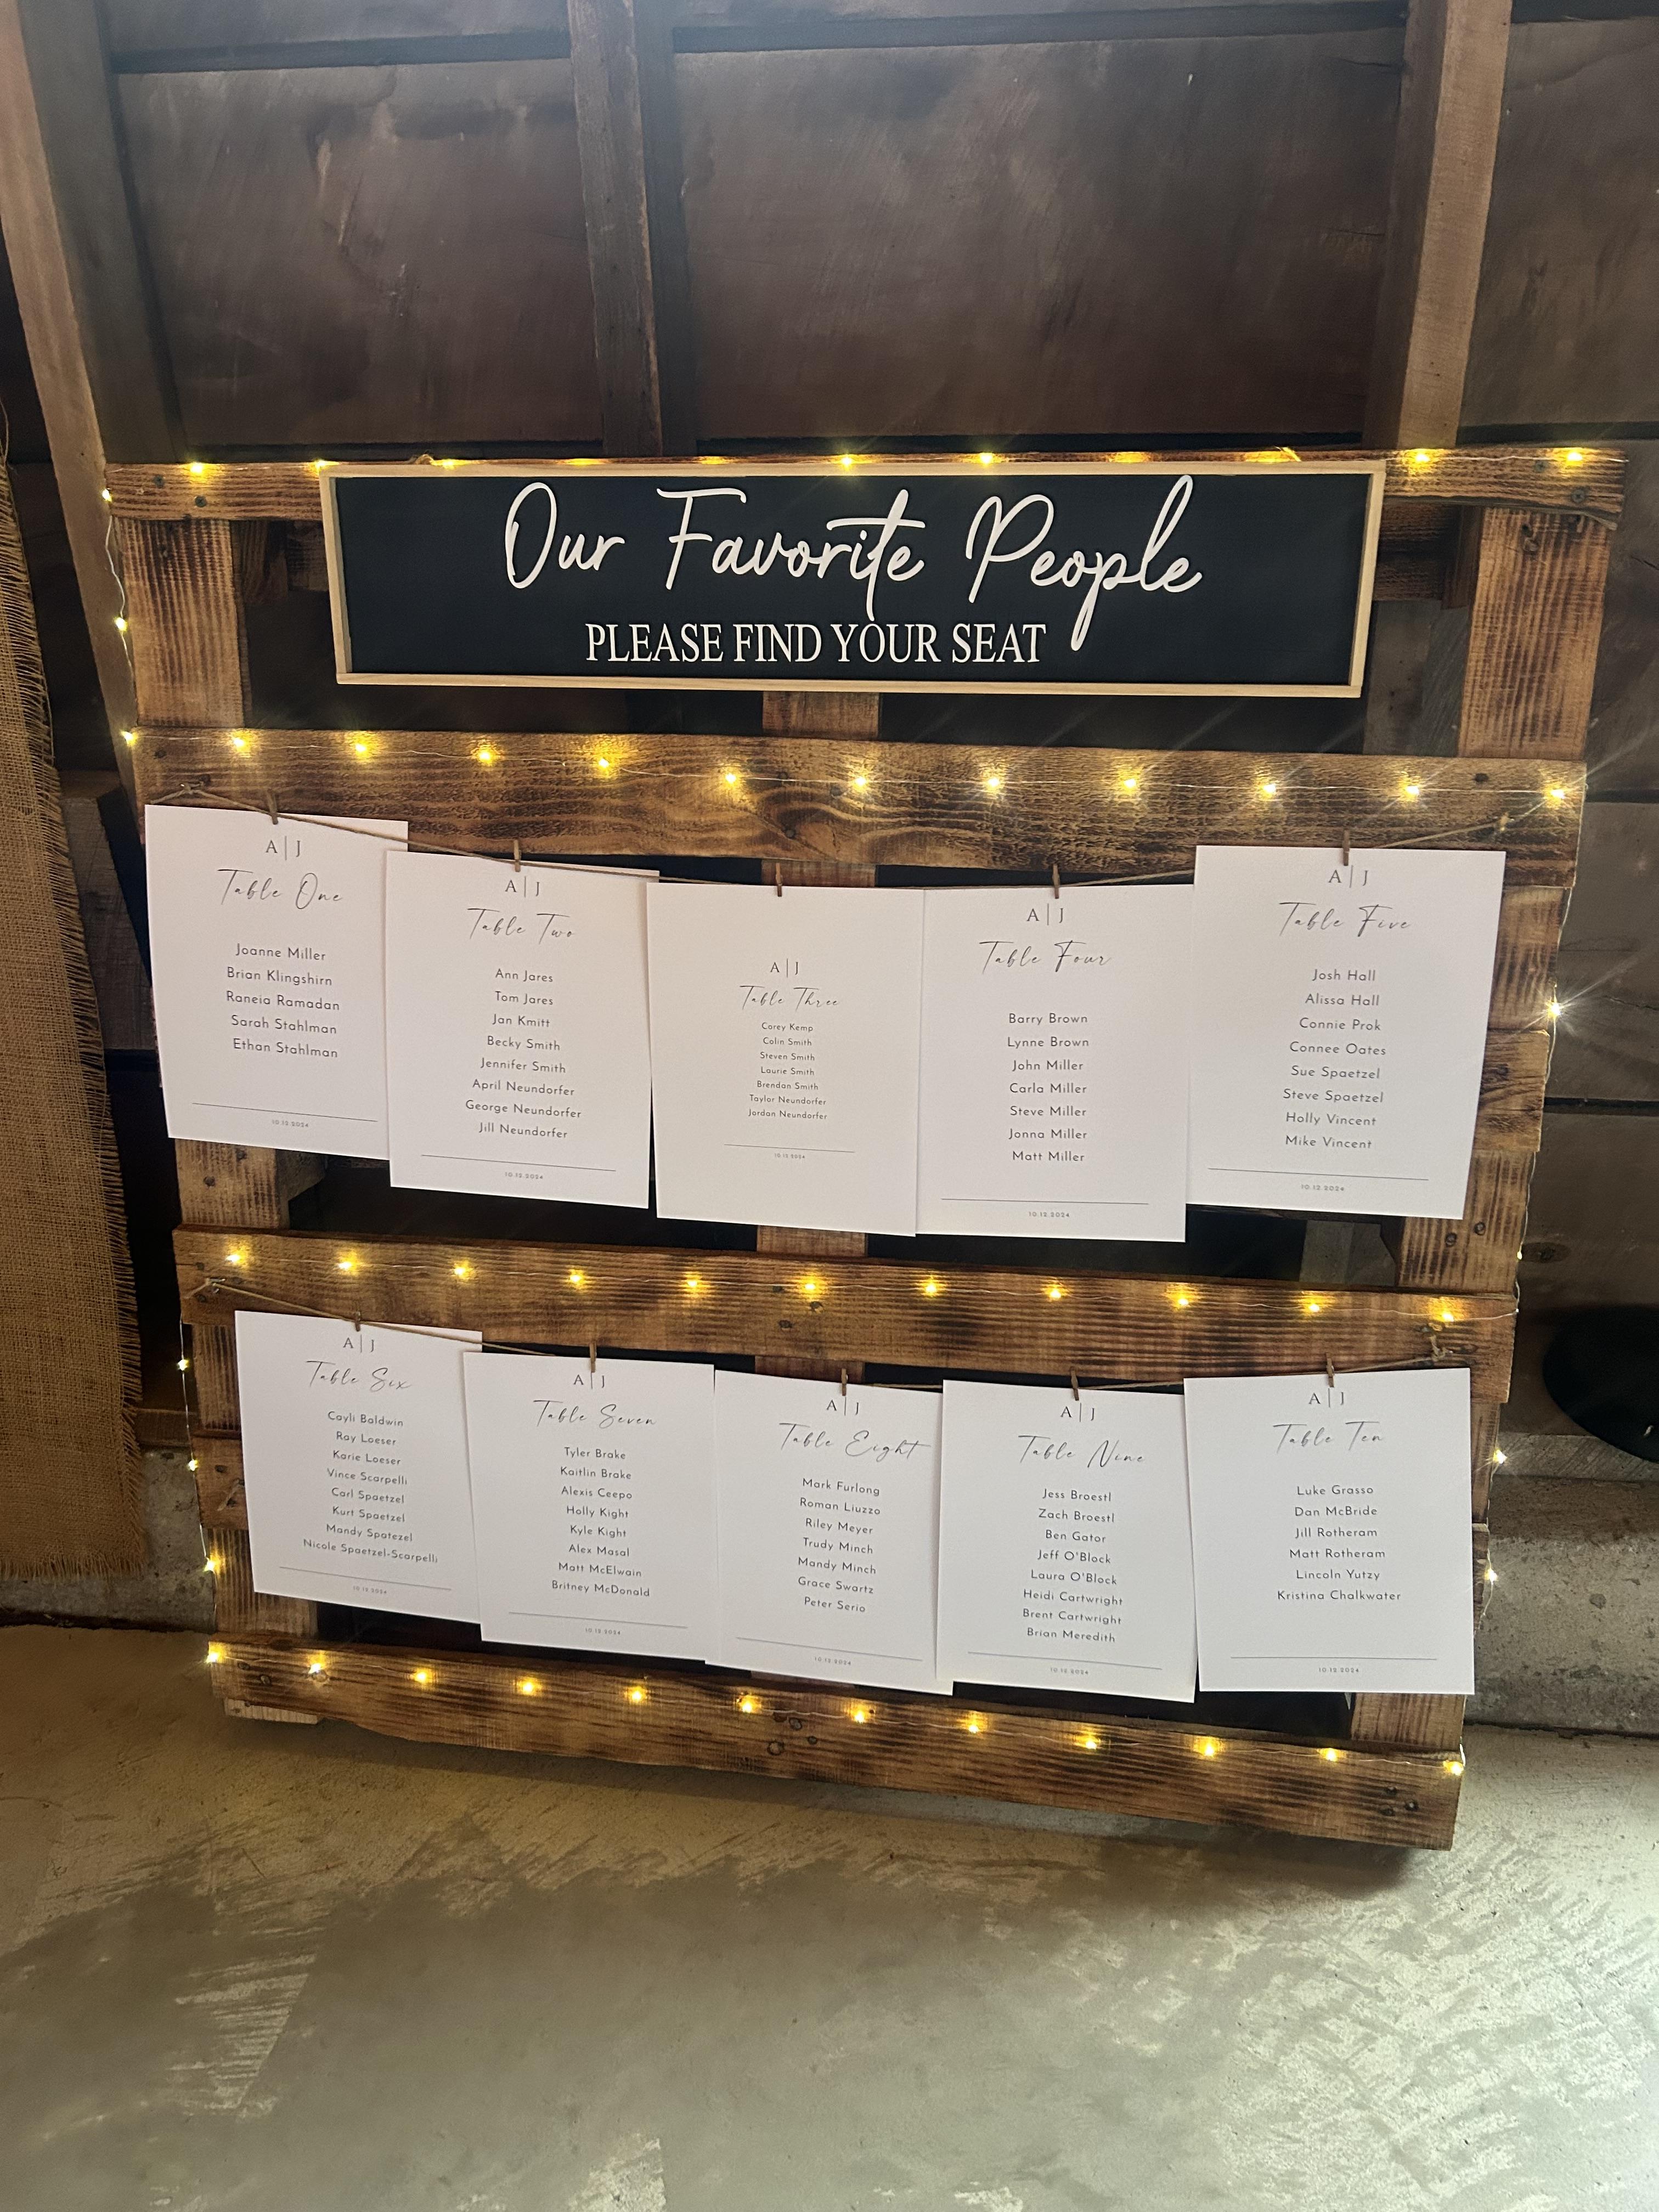 Our Favorite People
PLEASE FIND YOUR SEAT
A|J
Table One
Joanne Miller
Brian Klingshirn
Raneia Ramadan
Sarah Stahlman
Ethan Stahlman
10.12.2024
A|J
Table Two
Ann Jares
Tom Jares
Jan Kmitt
Becky Smith
Jennifer Smith
April Neundorfer
George Neundorfer
Jill Neundorfer
10.12.2024
A|J
Table Three
Corey Kemp
Colin Smith
Steven Smith
Laurie Smith
Brendan Smith
Taylor Neundorfer
Jordan Neundorfer
10.12.2024
A|J
Table Four
Barry Brown
Lynne Brown
John Miller
Carla Miller
Steve Miller
Jonna Miller
Matt Miller
10.12.2024
A|J
Table Five
Josh Hall
Alissa Hall
Connie Prok
Connee Oates
Sue Spaetzel
Steve Spaetzel
Holly Vincent
Mike Vincent
10.12.2024
A|J
Table Six
Cayli Baldwin
Ray Loeser
Karie Loeser
Vince Scarpelli
Carl Spaetzel
Kurt Spaetzel
Mandy Spatezel
Nicole Spaetzel-Scarpelli
10.12.2024
A|J
Table Seven
Tyler Brake
Kaitlin Brake
Alexis Ceepo
Holly Kight
Kyle Kight
Alex Masal
Matt McElwain
Britney McDonald
10.12.2024
A|J
Table Eight
Mark Furlong
Roman Liuzzo
Riley Meyer
Trudy Minch
Mandy Minch
Grace Swartz
Peter Serio
10.12.2024
A|J
Table Nine
Jess Broestl
Zach Broestl
Ben Gator
Jeff O'Block
Laura O'Block
Heidi Cartwright
Brent Cartwright
Brian Meredith
10.12.2024
A|J
Table Ten
Luke Grasso
Dan McBride
Jill Rotheram
Matt Rotheram
Lincoln Yutzy
Kristina Chalkwater
10.12.2024